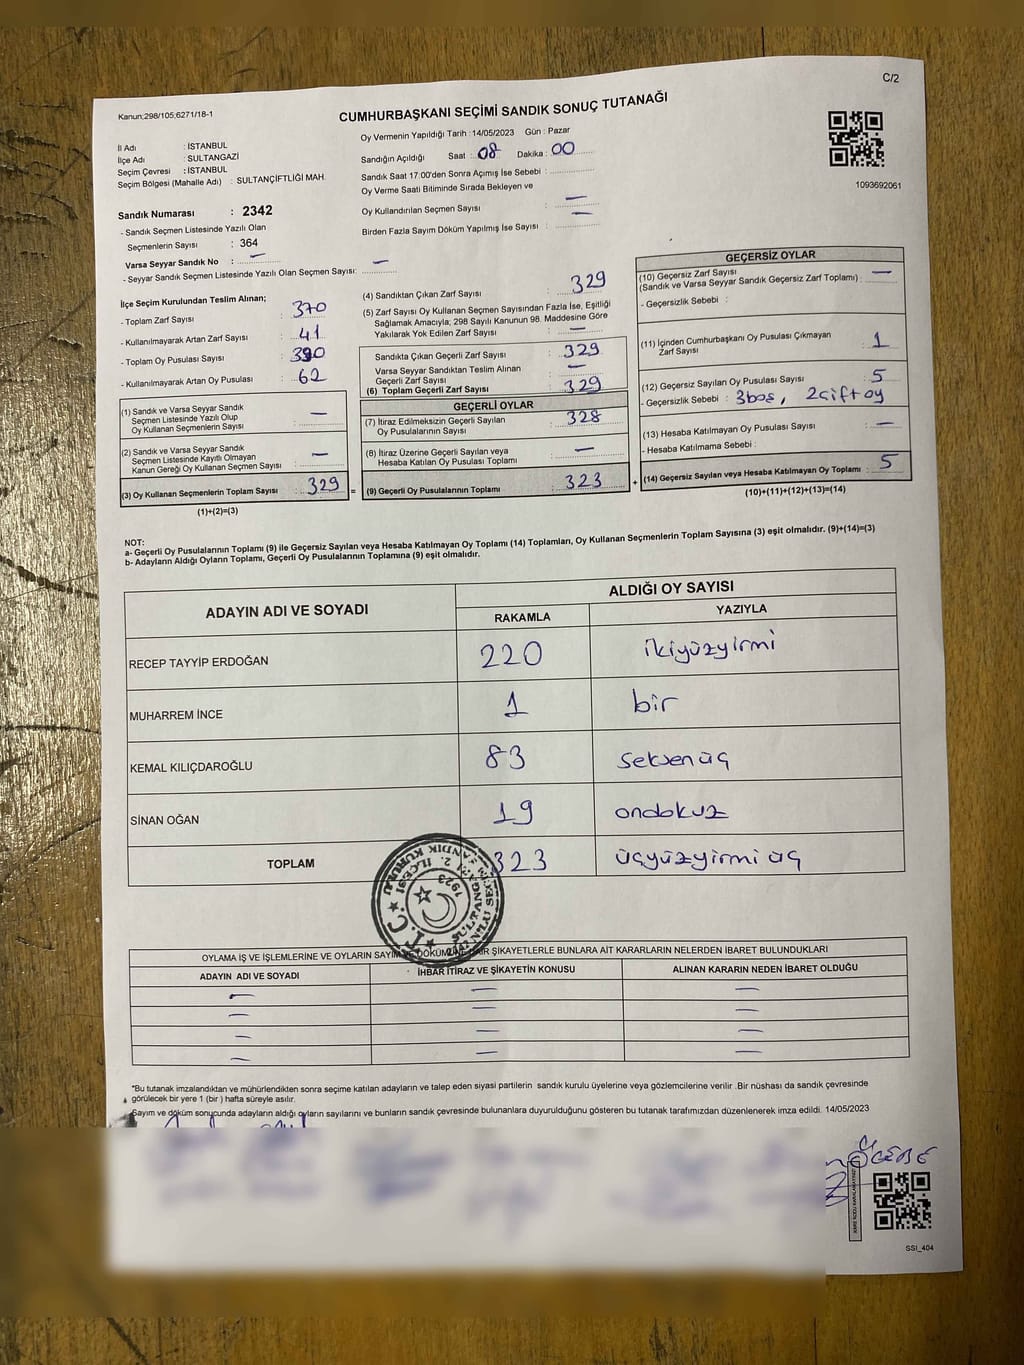 C/2
Kanun;298/105;6271/18-1
CUMHURBAŞKANI SEÇİMİ SANDIK SONUÇ TUTANAĞI
Oy Vermenin Yapıldığı Tarih :14/05/2023 Gün : Pazar
İl Adı : İSTANBUL
İlçe Adı : SULTANGAZİ
Seçim Çevresi : İSTANBUL
Seçim Bölgesi (Mahalle Adı) : SULTANÇİFTLİĞİ MAH.
Sandığın Açıldığı Saat : 08 Dakika : 00
Sandık Saat 17:00'den Sonra Açımış İse Sebebi :
Oy Verme Saati Bitiminde Sırada Bekleyen ve
Oy Kullandırılan Seçmen Sayısı : —
Birden Fazla Sayım Döküm Yapılmış İse Sayısı : —
1093692061
Sandık Numarası : 2342
- Sandık Seçmen Listesinde Yazılı Olan
Seçmenlerin Sayısı : 364
Varsa Seyyar Sandık No : —
- Seyyar Sandık Seçmen Listesinde Yazılı Olan Seçmen Sayısı: —
İlçe Seçim Kurulundan Teslim Alınan;
- Toplam Zarf Sayısı : 370
- Kullanılmayarak Artan Zarf Sayısı : 41
- Toplam Oy Pusulası Sayısı : 390
- Kullanılmayarak Artan Oy Pusulası : 62
(1) Sandık ve Varsa Seyyar Sandık
Seçmen Listesinde Yazılı Olup
Oy Kullanan Seçmenlerin Sayısı : —
(2) Sandık ve Varsa Seyyar Sandık
Seçmen Listesinde Kayıtlı Olmayan
Kanun Gereği Oy Kullanan Seçmen Sayısı : —
(3) Oy Kullanan Seçmenlerin Toplam Sayısı : 329 =
(1)+(2)=(3)
(4) Sandıktan Çıkan Zarf Sayısı : 329
(5) Zarf Sayısı Oy Kullanan Seçmen Sayısından Fazla İse, Eşitliği
Sağlamak Amacıyla; 298 Sayılı Kanunun 98. Maddesine Göre
Yakılarak Yok Edilen Zarf Sayısı : —
Sandıkta Çıkan Geçerli Zarf Sayısı : 329
Varsa Seyyar Sandıktan Teslim Alınan
Geçerli Zarf Sayısı : —
(6) Toplam Geçerli Zarf Sayısı : 329
GEÇERLİ OYLAR
(7) İtiraz Edilmeksizin Geçerli Sayılan
Oy Pusulalarının Sayısı : 328
(8) İtiraz Üzerine Geçerli Sayılan veya
Hesaba Katılan Oy Pusulası Toplamı : —
(9) Geçerli Oy Pusulalarının Toplamı : 323 +
GEÇERSİZ OYLAR
(10) Geçersiz Zarf Sayısı
(Sandık ve Varsa Seyyar Sandık Geçersiz Zarf Toplamı) : —
- Geçersizlik Sebebi :
(11) İçinden Cumhurbaşkanı Oy Pusulası Çıkmayan
Zarf Sayısı : 1
(12) Geçersiz Sayılan Oy Pusulası Sayısı : 5
- Geçersizlik Sebebi : 3boş, 2çift oy
(13) Hesaba Katılmayan Oy Pusulası Sayısı : —
- Hesaba Katılmama Sebebi :
(14) Geçersiz Sayılan veya Hesaba Katılmayan Oy Toplamı : 5
(10)+(11)+(12)+(13)=(14)
NOT:
a- Geçerli Oy Pusulalarının Toplamı (9) ile Geçersiz Sayılan veya Hesaba Katılmayan Oy Toplamı (14) Toplamları, Oy Kullanan Seçmenlerin Toplam Sayısına (3) eşit olmalıdır. (9)+(14)=(3)
b- Adayların Aldığı Oyların Toplamı, Geçerli Oy Pusulalarının Toplamına (9) eşit olmalıdır.
ADAYIN ADI VE SOYADI ALDIĞI OY SAYISI
RAKAMLA YAZIYLA
RECEP TAYYİP ERDOĞAN 220 ikiyüzyirmi
MUHARREM İNCE 1 bir
KEMAL KILIÇDAROĞLU 83 seksenüç
SİNAN OĞAN 19 ondokuz
TOPLAM 323 üçyüzyirmi üç
T.C. 1923
OYLAMA İŞ VE İŞLEMLERİNE VE OYLARIN SAYIM VE DÖKÜMÜNE DAİR ŞİKAYETLERLE BUNLARA AİT KARARLARIN NELERDEN İBARET BULUNDUKLARI
ADAYIN ADI VE SOYADI İHBAR İTİRAZ VE ŞİKAYETİN KONUSU ALINAN KARARIN NEDEN İBARET OLDUĞU
— — —
— — —
— — —
— — —
*Bu tutanak imzalandıktan ve mühürlendikten sonra seçime katılan adayların ve talep eden siyasi partilerin sandık kurulu üyelerine veya gözlemcilerine verilir .Bir nüshası da sandık çevresinde
görülecek bir yere 1 (bir ) hafta süreyle asılır.
Sayım ve döküm sonucunda adayların aldığı oyların sayılarını ve bunların sandık çevresinde bulunanlara duyurulduğunu gösteren bu tutanak tarafımızdan düzenlenerek imza edildi. 14/05/2023
SSI_404